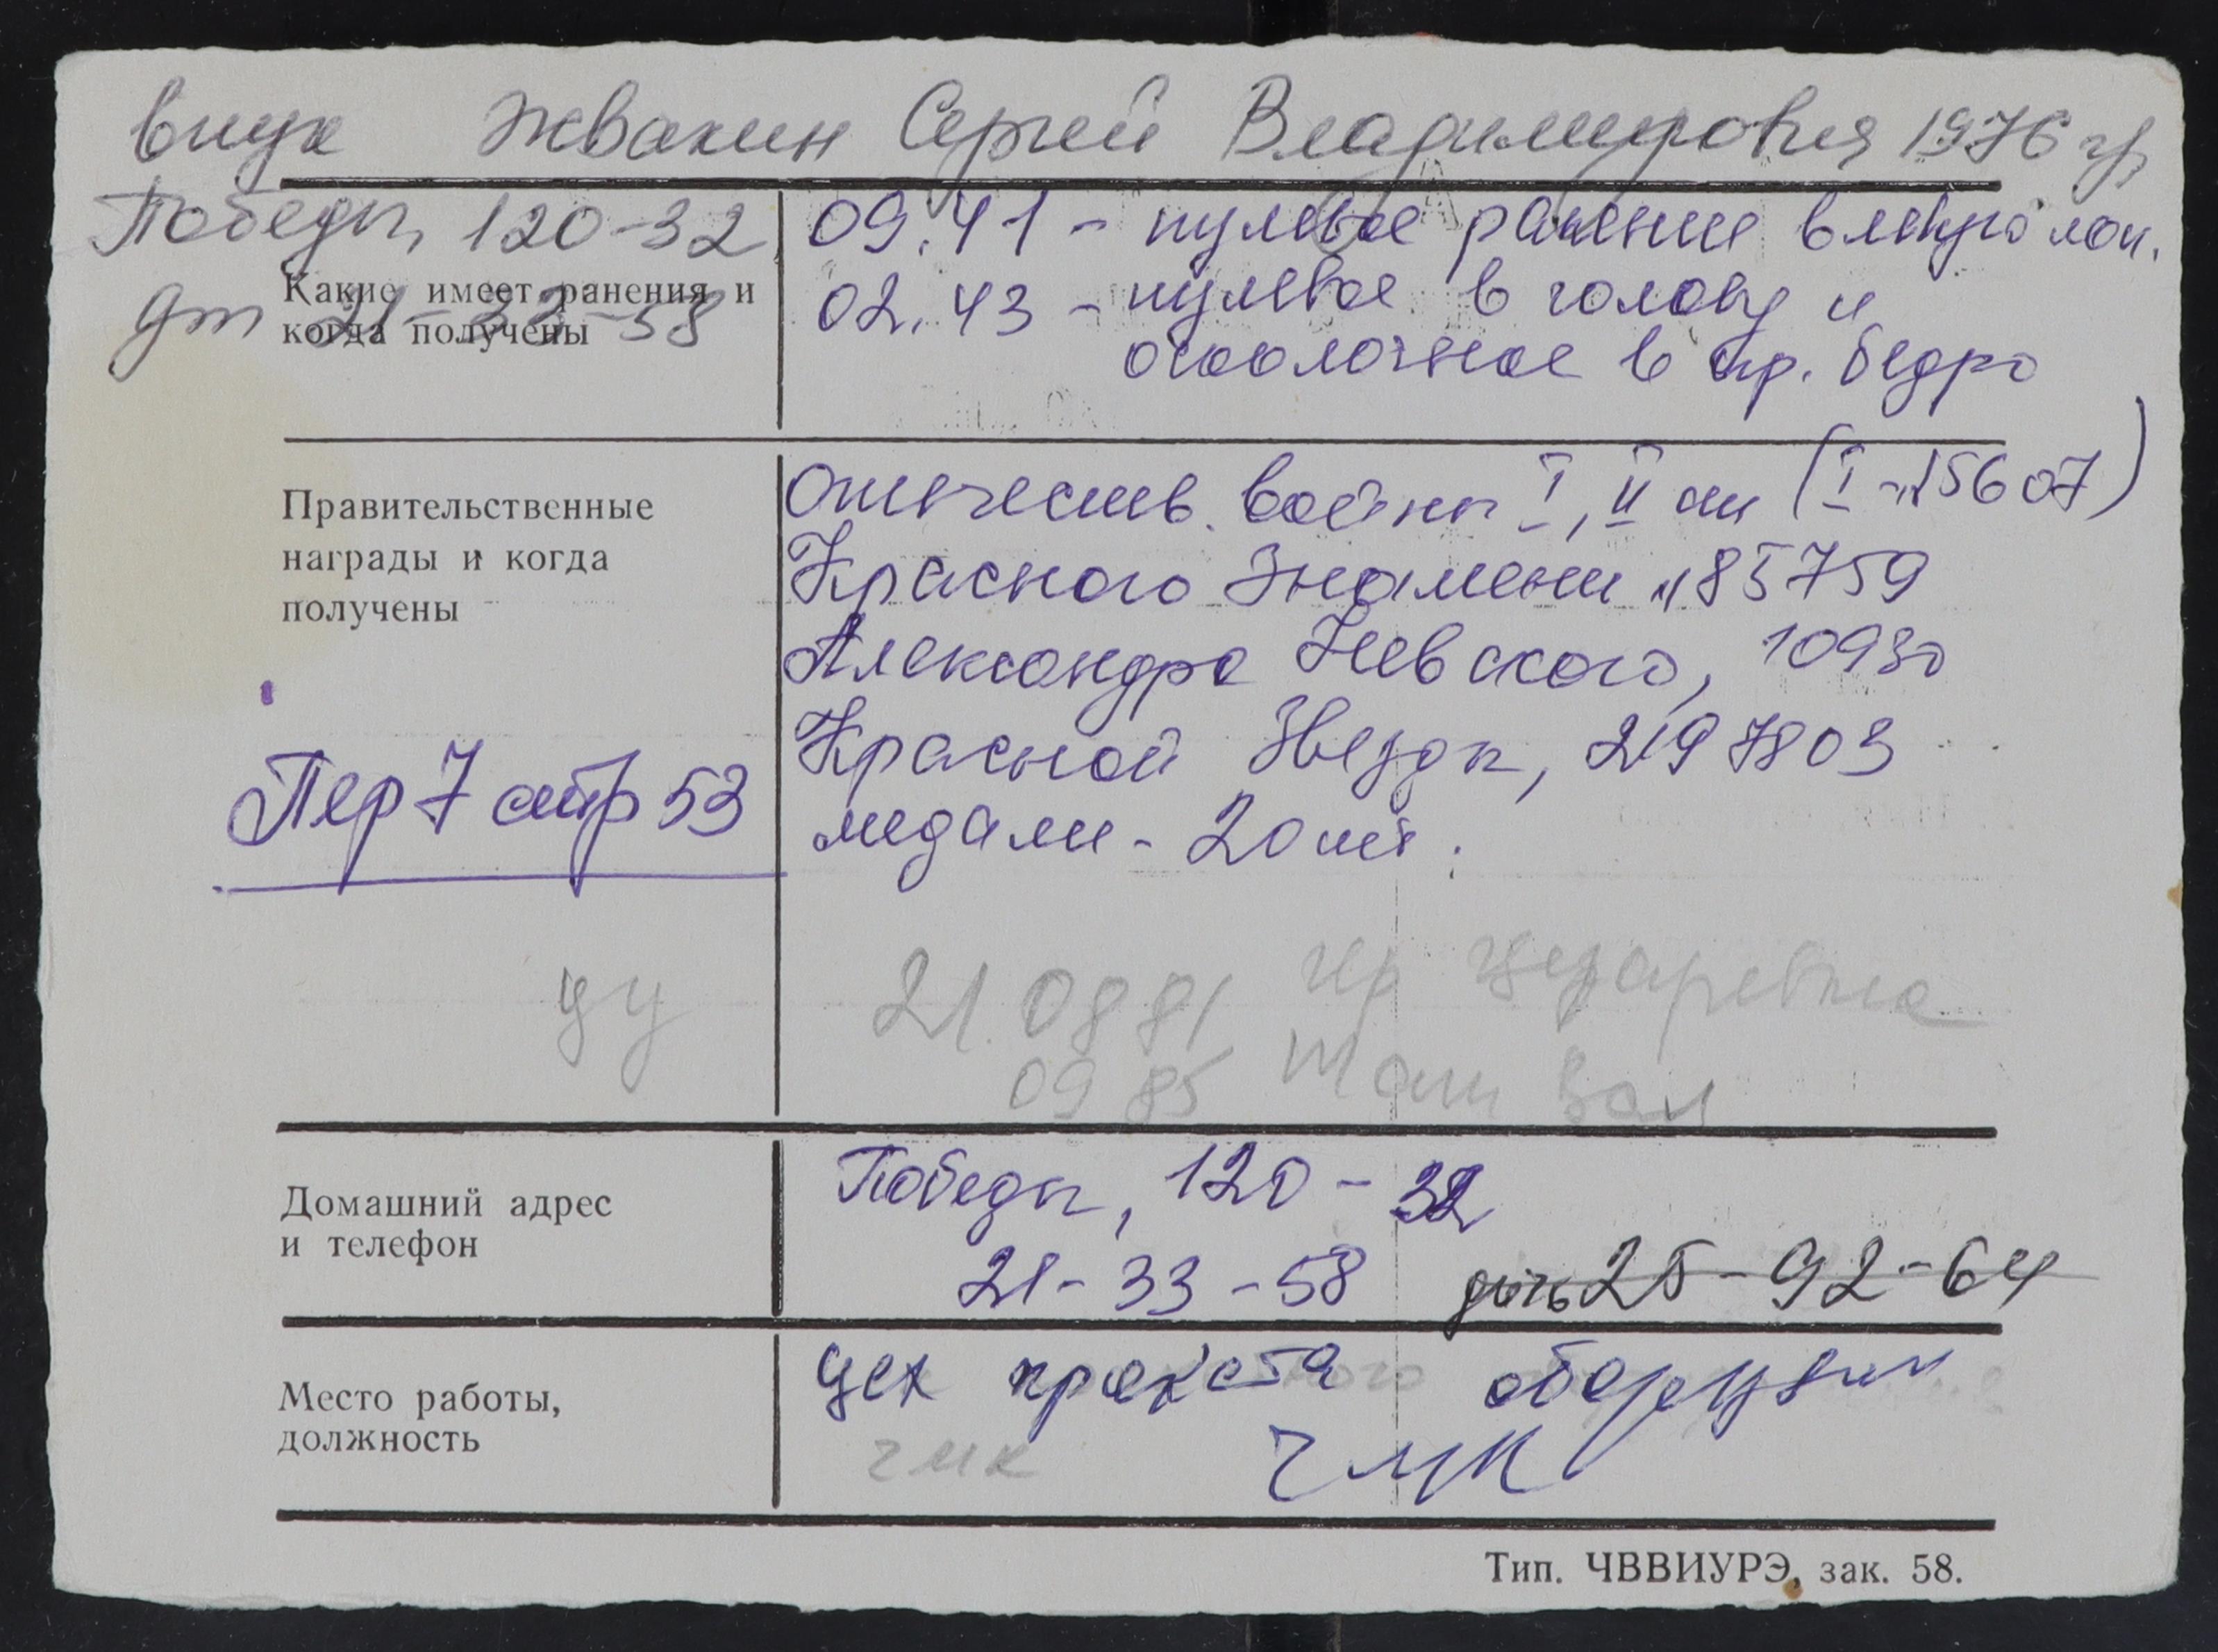 внук Жвакин Сергей Владимирович 1976 гр
Победы, 120-32
дт 21-33-58
Какие имеет ранения и
когда получены
09.41 - пулевое ранение в левую лоп.
02.43 - пулевое в голову и
осколочное в пр. бедро
Правительственные
награды и когда
получены
Отечеств. войны I, II ст (I-15607)
Красного Знамени 185759
Александра Невского, 10930
Красной Звезды, 2197803
медали - 20 шт.
Пер 7 стр 53
21.08 81
09 85
Домашний адрес
и телефон
Победы, 120 - 32
21-33-58 дочь 25-92-64
Место работы,
должность
цех проката
чмк ЧМК
Тип. ЧВВИУРЭ, зак. 58.